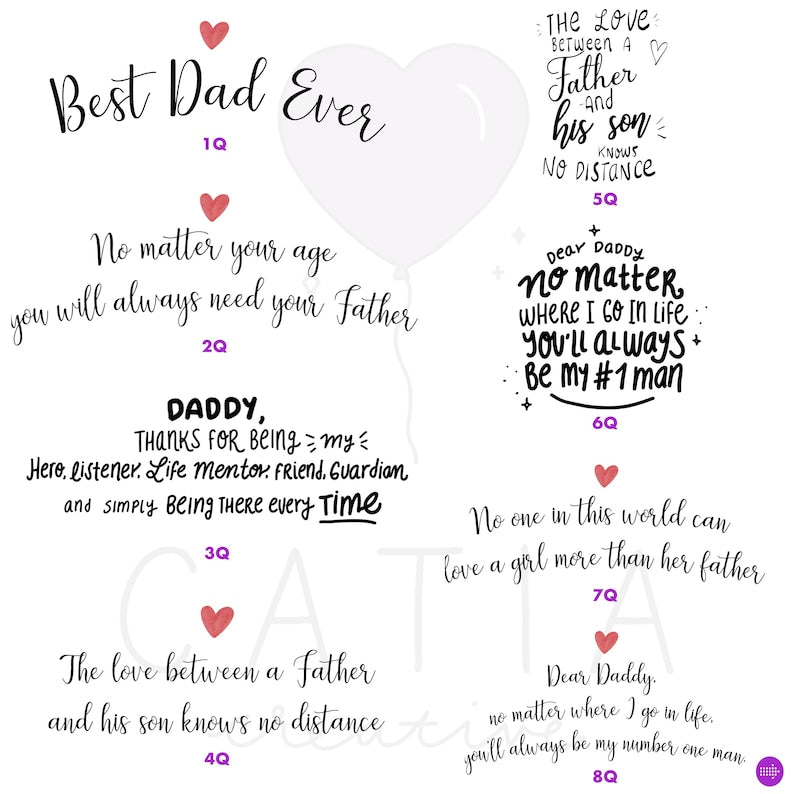 Best Dad Ever
1Q
No matter your age
you will always need your Father
2Q
DADDY,
THANKS FOR BEING my
Hero, listener, Life Mentor, Friend, Guardian
and simply BEING THERE every TIME
3Q
The love between a Father
and his son knows no distance
4Q
THE LOVE
BETWEEN A
Father
AND
his son
KNOWS
NO DISTANCE
5Q
DEAR DADDY
NO MATTER
WHERE I GO IN LIFE
YOU'LL ALWAYS
BE MY #1 MAN
6Q
No one in this world can
love a girl more than her father
7Q
Dear Daddy,
no matter where I go in life,
you'll always be my number one man.
8Q
CATIA
creative